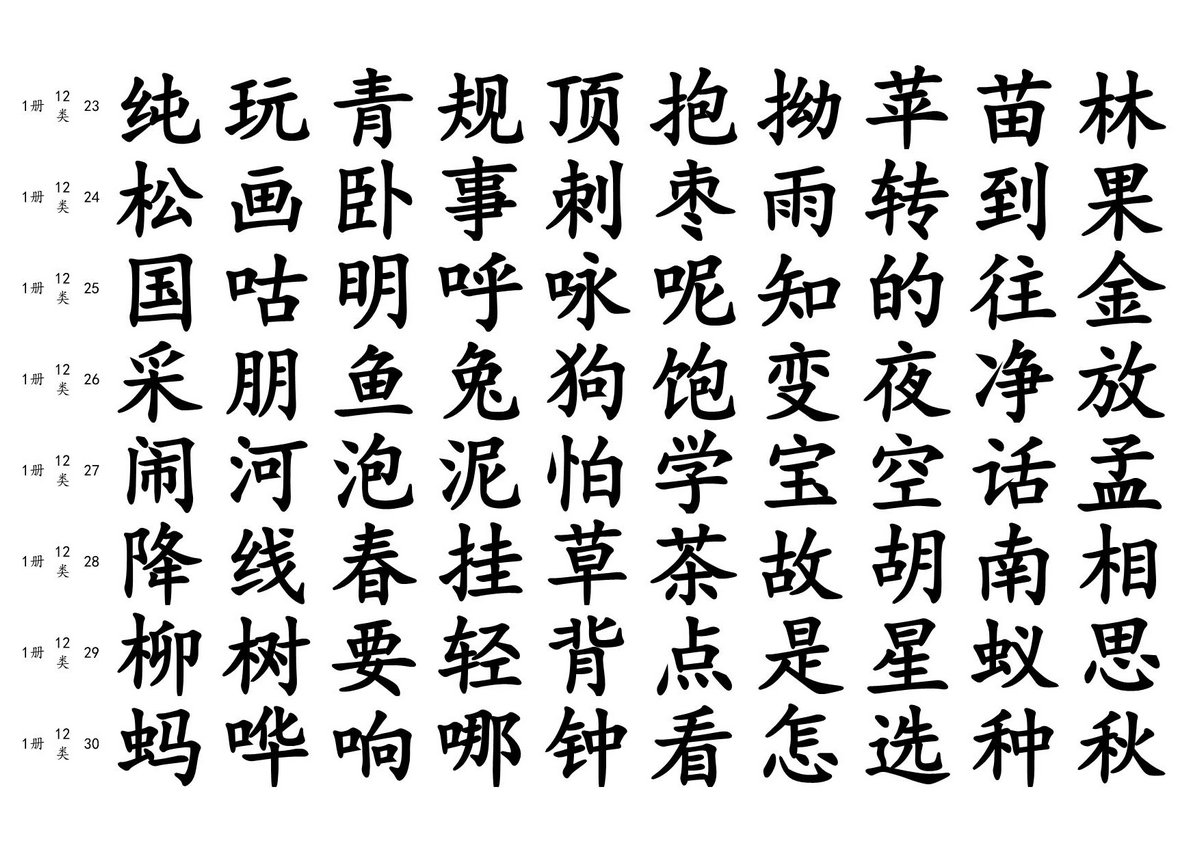 1册 12类 23 纯玩青规顶抱拗苹苗林
1册 12类 24 松画卧事刺枣雨转到果
1册 12类 25 国咕明呼咏呢知的往金
1册 12类 26 采朋鱼兔狗饱变夜净放
1册 12类 27 闹河泡泥怕学宝空话孟
1册 12类 28 降线春挂草茶故胡南相
1册 12类 29 柳树要轻背点是星蚁思
1册 12类 30 蚂哗响哪钟看怎选种秋